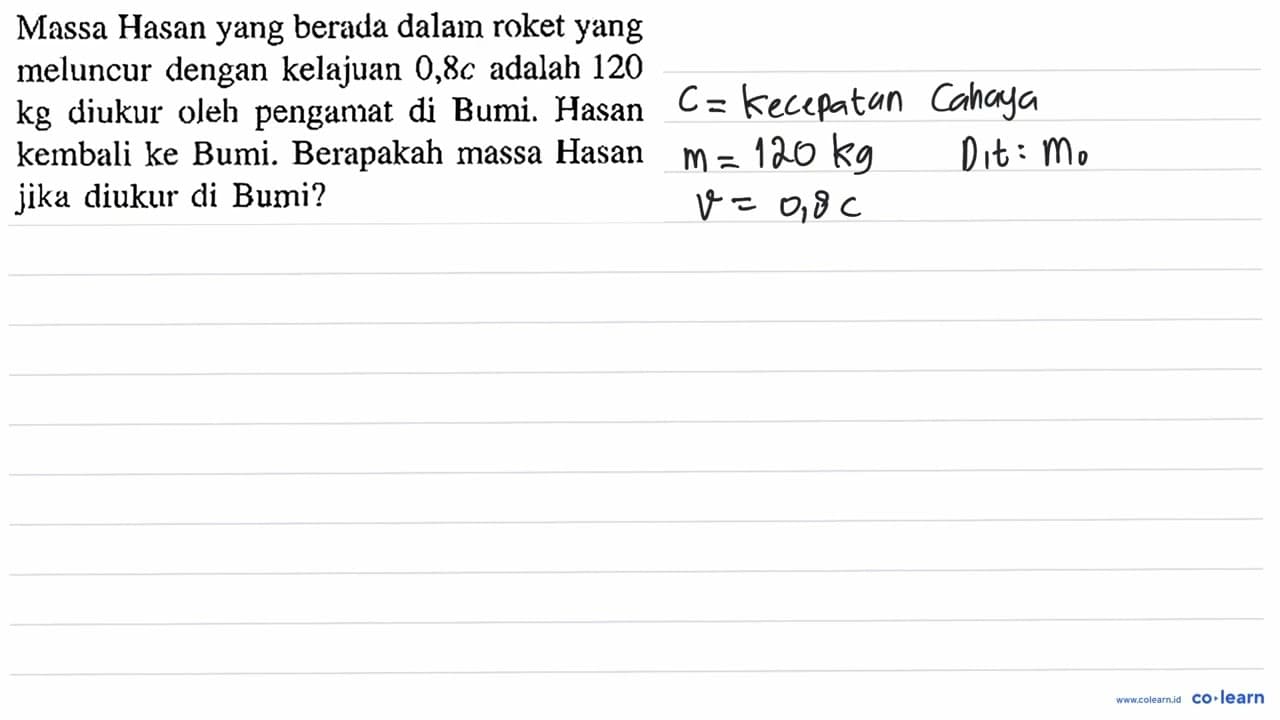 Massa Hasan yang berada dalam roket yang
meluncur dengan kelajuan 0,8c adalah 120
kg diukur oleh pengamat di Bumi. Hasan
kembali ke Bumi. Berapakah massa Hasan
jika diukur di Bumi?
C = kecepatan Cahaya
m = 120 kg Dit : m₀
v = 0,8 c
www.colearn.id co·learn